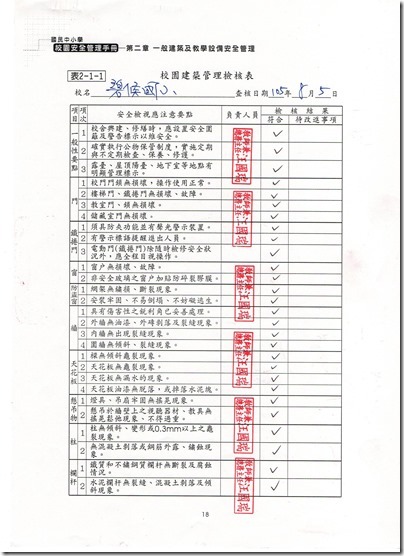 國民中小學
校園安全管理手冊 第二章 一般建築及教學設備安全管理
表2-1-1 校園建築管理檢核表
校名 碧候國小 查核日期 105年8月5日
項目 項次 安全檢視應注意要點 負責人員 檢核結果
符合 待改進事項
一般性要點 1 校舍興建、修繕時,應設置安全圍籬及警告標示以維安全。
2 確實執行公物保管制度,實施定期與不定期檢查、保養、修護。
3 露臺、屋頂陽臺、地下室等地點有明顯管理標示。
門 1 校門門鎖無損壞,操作使用正常。
2 樓梯門、鐵捲門無損壞、故障。
3 教室門、鎖無損壞。
4 儲藏室門無損壞。
鐵捲門 1 須具防夾功能並有聲光警示裝置。
2 有警示標語提醒進出人員。
3 電動門(鐵捲門)除隨時檢修安全狀況外,應全程目視操作。
窗 1 窗戶無損壞、故障。
2 非安全玻璃之窗戶加貼防碎裂膠膜。
防盜窗 1 網架無鏽損、斷裂現象。
2 安裝牢固、不易倒塌、不妨礙逃生。
牆 1 具有傷害性之銳利角已妥善處理。
2 外牆無油漆、外磚剝落及裂縫現象。
3 內牆無出現裂縫現象。
4 圍牆無傾斜、裂縫現象。
天花板 1 樑無傾斜龜裂現象。
2 天花板無龜裂現象。
3 天花板無漏水的現象。
4 天花板油漆無脫落,或掉落水泥塊。
懸吊物 1 燈具、吊扇牢固無搖晃現象。
2 懸吊於牆壁上之視聽器材、教具無搖晃鬆弛現象、不得過重。
柱 1 柱無傾斜、變形或0.3mm以上之龜裂現象。
2 無混凝土剝落或鋼筋外露、鏽蝕現象。
欄杆 1 鐵質和不鏽鋼質欄杆無斷裂及腐蝕情況。
2 水泥欄杆無裂縫、混凝土剝落及傾斜現象。
18